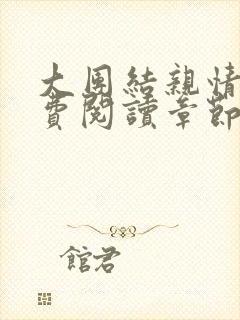 大團結親情
費閱讀章節
館君